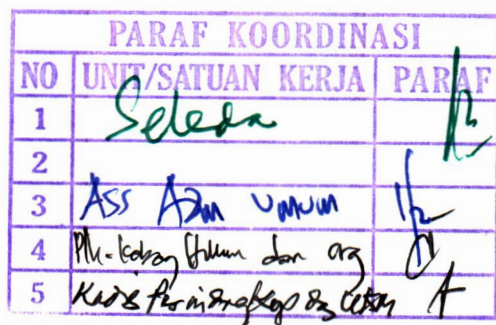 PARAF KOORDINASI
NO UNIT/SATUAN KERJA PARAF
1 Sekda
2
3 Ass Adm Umum
4 Plh. Kabag Hukum dan Org
5 Kadis